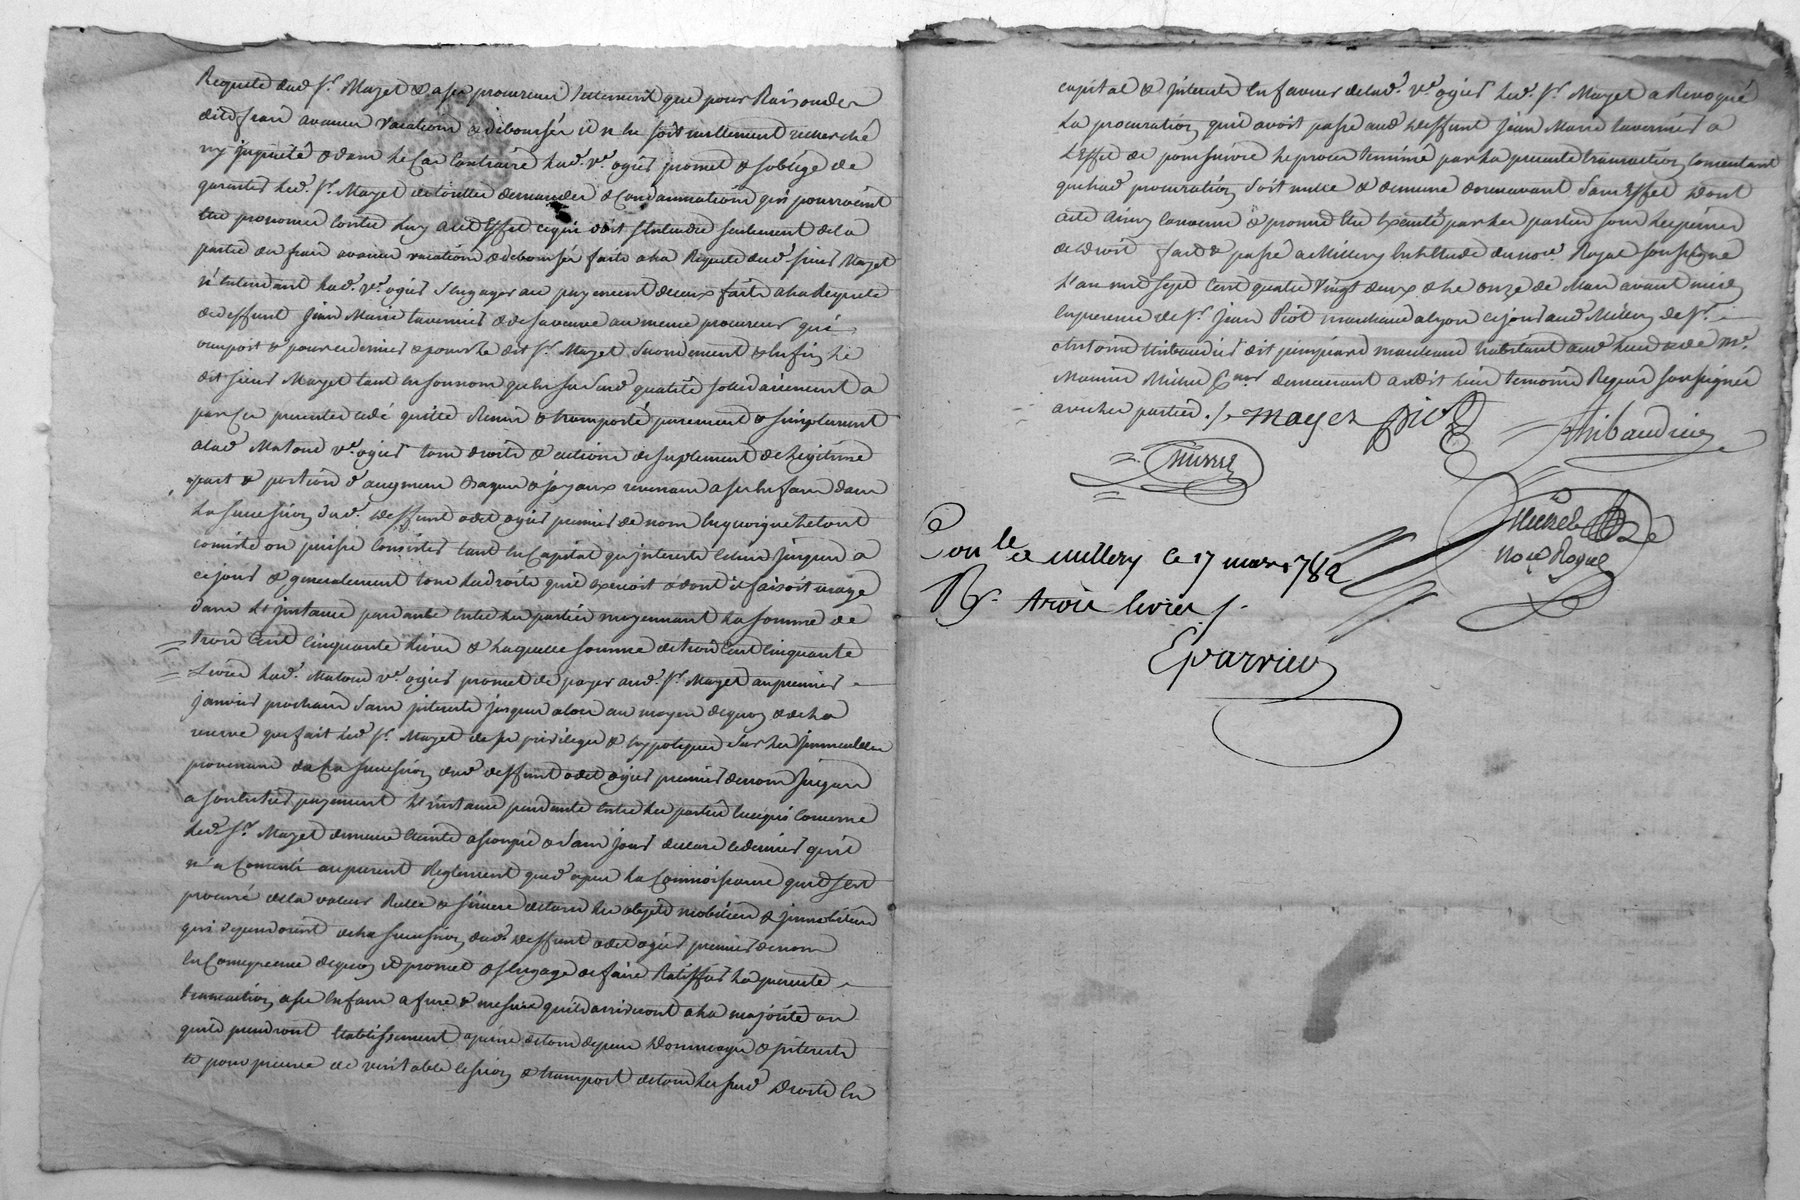 Requete dud. Sr. Mayet & a ses procureur tellement que pour Raison des
dits frais avances vacations & deboursés il ne soit nullement recherché
ny inquieté & dans le cas contraire lad. ve. ogier promet & soblige de
garantir led. Sr. Mayet de toutes demandes & condamnations qui pourroient
etre prononcées contre luy a cet Effet ce qui doit s'entendre seulement de la
partie des frais avances vacations & deboursés faits a la Requete dud. sieur Mayet
n'entendant lad. ve. ogier s'engager au payement de ceux faits a la Requete
de deffunt Jean Marie tavernier & de sa veuve au meme procureur qui
pour ce dernier & pour le dit Sr. Mayet & enfin le
dit sieur Mayet tant en son nom qu'en sa susd. qualité solidairement a
par ces presentes cedé quitté Remis & transporté purement & simplement
a lad. Matoud ve. ogier tous droits & actions de suplement de legitime
part & portion d'augment bagues & joyaux revenant a ses enfans dans
La succession dud. deffunt odet ogier premier de nom en quoy que le tout
consiste ou puisse consister tant en capital qu'interets echus jusques a
ce jour & generalement tous les droits qu'il exercoit & dont il faisoit usage
dans L'instance pendante entre les parties moyennant la somme de
trois cent cinquante livres & laquelle somme de trois cent cinquante
Livres lad. Matoud ve. ogier promet de payer aud. Sr. Mayet au premier
janvier prochain sans interets jusques alors au moyen de quoy & de la
reserve que fait led. Sr. Mayet de ses privileges & hypoteques sur les immeubles
provenant de la succession dud. deffunt odet ogier premier de nom jusques
a son entier payement L'instance pendante entre les parties en ce qui concerne
led. Sr. Mayet demeure éteinte assoupie & sans jours declare ce dernier qu'il
n'a consenti au present Reglement que d'apres la connoissance qu'il s'est
procuré de la valeur Reelle & sincere de tous les objets mobiliers & immobiliers
qui dependoient de la succession dud. deffunt odet ogier premier de nom
En consequence de quoy il promet & s'engage de faire Ratiffier la presente
transaction a ses enfans a fure & mesure qu'ils arriveront a la majorité ou
qu'ils prendront Etablissement a peine de tous depens dommages & interets
& pour preuve de veritable cession & transport de tous les susd. Droits en
capital & interets En faveur de lad. ve. ogier led. Sr. Mayet a Revoqué
La procuration qu'il avoit passé aud. deffunt jean Marie tavernier a
L'Effet de poursuivre le proces terminé par la presente transaction consentant
que lad. procuration soit nulle & demeure dorenavant sans Effet Dont
acte ainsy convenu & promis etre Executé par les parties sous les peines
de droit fait & passé a Millery En l'Etude du nore. Royal soussigné
L'an mil sept Cent quatre Vingt deux & le onze de Mars avant midy
En presence de Sr. Jean Piot marchand a lyon ce jour aud. Millery & de Sr.
Antoine thibaudier dit marchand habitant aud. lieu & de Me.
Maurice Michel demeurant audit lieu temoins Requis soussignés
avec les parties ./. mayet piot
thibaudier
Michel
nore Royal
Con le a millery ce 17 mars 1782
R. trois livres ./.
Eparvier